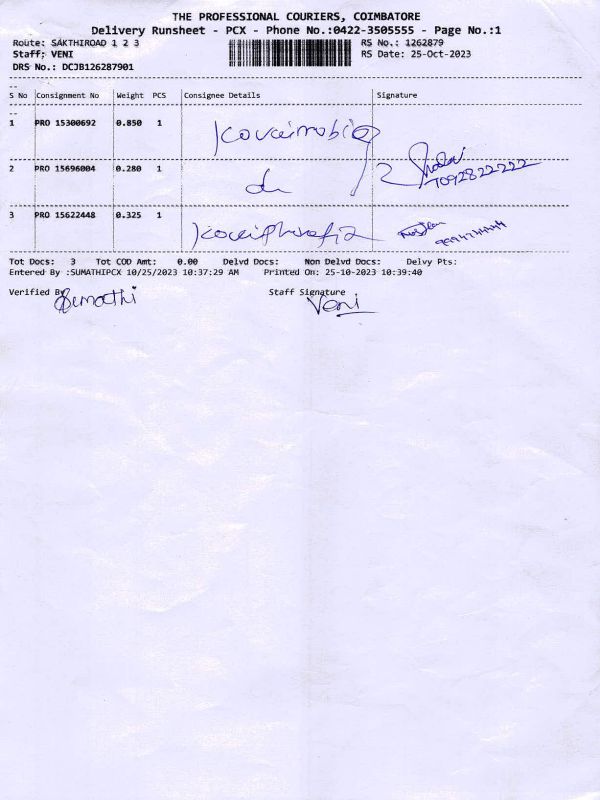 THE PROFESSIONAL COURIERS, COIMBATORE
Delivery Runsheet - PCX - Phone No.:0422-3505555 - Page No.:1
Route: SAKTHIROAD 1 2 3 RS No.: 1262879
Staff: VENI RS Date: 25-Oct-2023
DRS No.: DCJB126287901
S No Consignment No Weight PCS Consignee Details Signature
1 PRO 15300692 0.850 1
2 PRO 15696004 0.280 1 do 7092822222
3 PRO 15622448 0.325 1
Tot Docs: 3 Tot COD Amt: 0.00 Delvd Docs: Non Delvd Docs: Delvy Pts:
Entered By :SUMATHIPCX 10/25/2023 10:37:29 AM Printed On: 25-10-2023 10:39:40
Verified By Staff Signature
Sumathi Veni